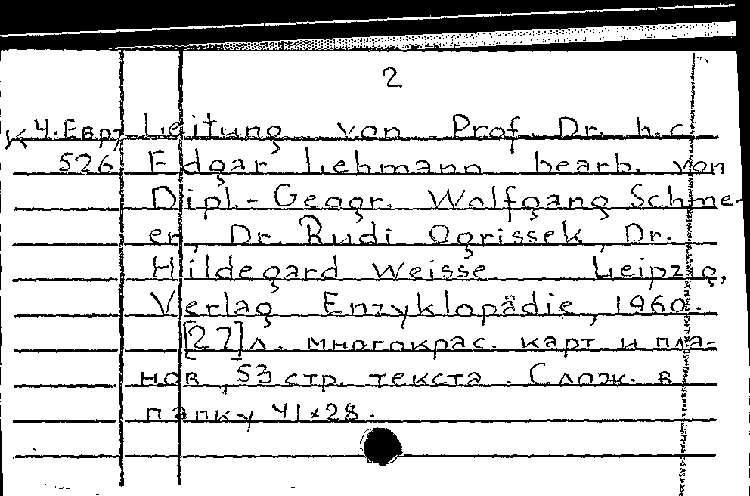 2
К 4.Евр7 Leitung von Prof. Dr. h.c.
526 Edgar Lehmann bearb. von
Dipl.-Geogr. Wolfgang Schme-
er, Dr. Rudi Ogrissek, Dr.
Hildegard Weisse. Leipzig,
Verlag Enzyklopädie, 1960.
[27]л. многокрас. карт и пла-
нов, 53 стр. текста. Слож. в
папку 41×28.